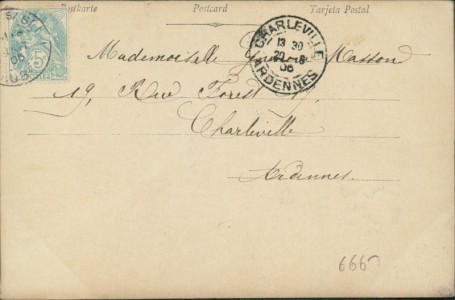 Postkarte Postcard Tarjeta Postal
CHARLEVILLE
13 30
ARDENNES
Mademoiselle Masson
19, Rue Forest 19,
Charleville
Ardennes.